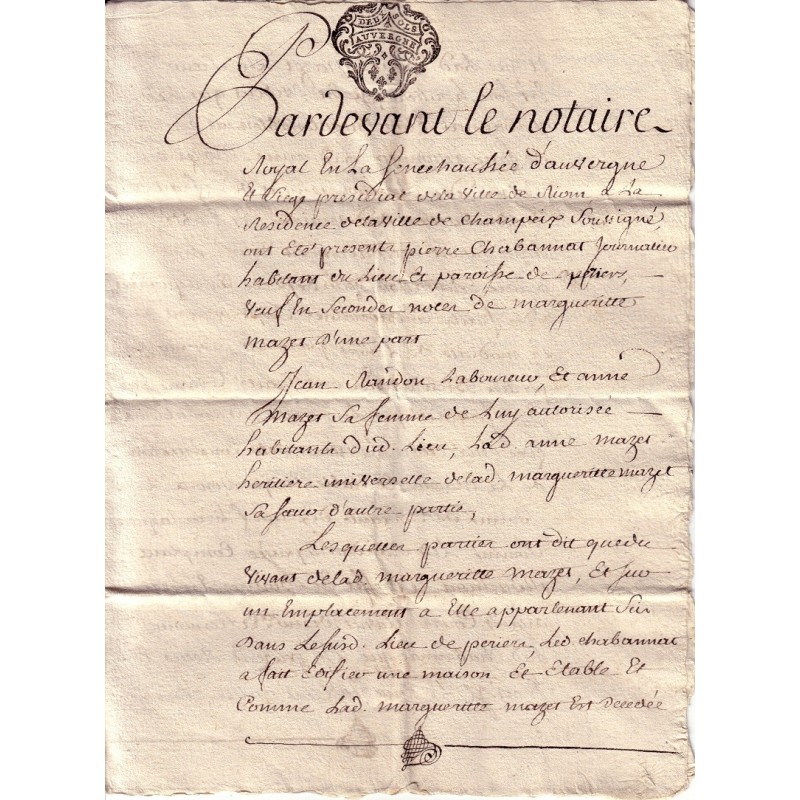 DEUX SOLS
AUVERGNE
Pardevant le notaire
Royal En La senechaussée d'auvergne
Et siege presidial de la ville de Riom a La
Residence de la ville de Champeix Soussigné,
ont eté presents pierre Chabannat Journalier
habitant du Lieu Et paroisse de periers,
veuf En secondes noces de margueritte
mazet d'une part
Jean Randon Laboureur, Et anne
Mazet Sa femme de Luy autorisée
habitants dud. Lieu, Lad. anne mazet
heritiere universelle de lad. margueritte mazet
Sa sœur d'autre partie,
Lesquelles parties ont dit que du
vivant de lad. margueritte mazet, Et sur
un Emplacement a Elle appartenant Sis
dans Lesusd. Lieu de periers, Led. chabannat
a fait Edifier une maison Et Etable Et
Comme Lad. margueritte mazet Est decedée